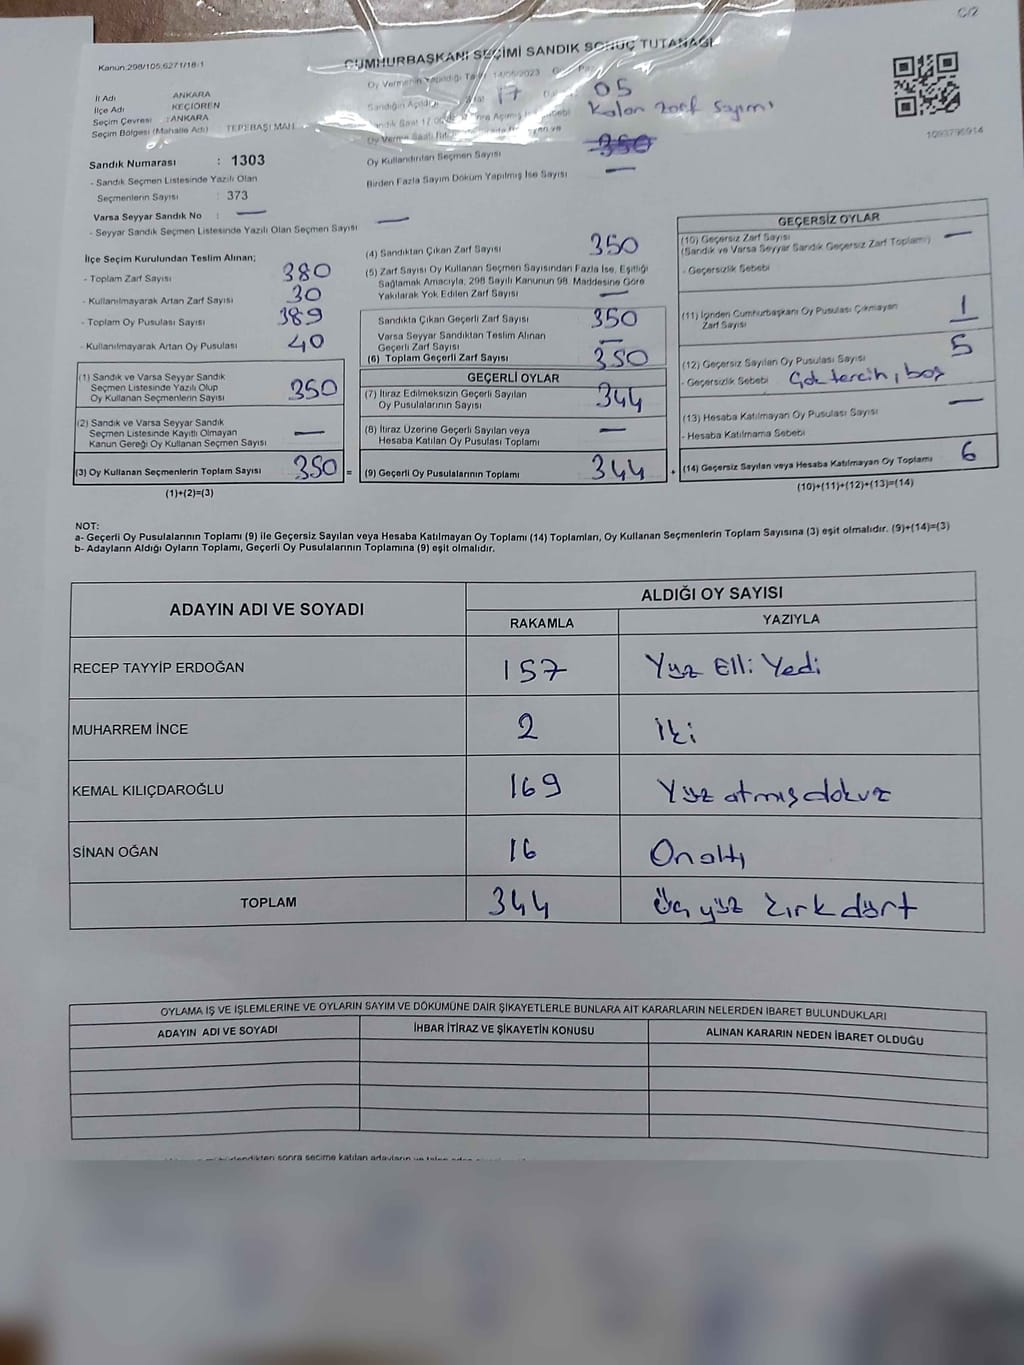 C/2
Kanun.298/105,6271/18-1
CUMHURBAŞKANI SEÇİMİ SANDIK SONUÇ TUTANAĞI
İl Adı ANKARA
İlçe Adı KEÇİÖREN
Seçim Çevresi : ANKARA
Seçim Bölgesi (Mahalle Adı) TEPEBAŞI MAH.
Sandık Numarası : 1303
- Sandık Seçmen Listesinde Yazılı Olan
Seçmenlerin Sayısı : 373
Varsa Seyyar Sandık No : —
- Seyyar Sandık Seçmen Listesinde Yazılı Olan Seçmen Sayısı —
Oy Vermenin Yapıldığı 14/05/2023
Sandığın Açıldığı 17 05
Kalan zarf sayımı
Oy Kullandırılan Seçmen Sayısı 350
Birden Fazla Sayım Döküm Yapılmış İse Sayısı —
1093796914
İlçe Seçim Kurulundan Teslim Alınan;
- Toplam Zarf Sayısı 380
- Kullanılmayarak Artan Zarf Sayısı 30
- Toplam Oy Pusulası Sayısı 389
- Kullanılmayarak Artan Oy Pusulası 40
(1) Sandık ve Varsa Seyyar Sandık
Seçmen Listesinde Yazılı Olup
Oy Kullanan Seçmenlerin Sayısı 350
(2) Sandık ve Varsa Seyyar Sandık
Seçmen Listesinde Kayıtlı Olmayan
Kanun Gereği Oy Kullanan Seçmen Sayısı —
(3) Oy Kullanan Seçmenlerin Toplam Sayısı 350 =
(1)+(2)=(3)
(4) Sandıktan Çıkan Zarf Sayısı 350
(5) Zarf Sayısı Oy Kullanan Seçmen Sayısından Fazla İse, Eşitliği
Sağlamak Amacıyla, 298 Sayılı Kanunun 98. Maddesine Göre
Yakılarak Yok Edilen Zarf Sayısı —
Sandıkta Çıkan Geçerli Zarf Sayısı 350
Varsa Seyyar Sandıktan Teslim Alınan
Geçerli Zarf Sayısı —
(6) Toplam Geçerli Zarf Sayısı 350
GEÇERLİ OYLAR
(7) İtiraz Edilmeksizin Geçerli Sayılan
Oy Pusulalarının Sayısı 344
(8) İtiraz Üzerine Geçerli Sayılan veya
Hesaba Katılan Oy Pusulası Toplamı —
(9) Geçerli Oy Pusulalarının Toplamı 344 +
GEÇERSİZ OYLAR
(10) Geçersiz Zarf Sayısı —
(Sandık ve Varsa Seyyar Sandık Geçersiz Zarf Toplamı)
- Geçersizlik Sebebi
(11) İçinden Cumhurbaşkanı Oy Pusulası Çıkmayan
Zarf Sayısı 1
(12) Geçersiz Sayılan Oy Pusulası Sayısı 5
- Geçersizlik Sebebi Çok tercih, boş
(13) Hesaba Katılmayan Oy Pusulası Sayısı —
- Hesaba Katılmama Sebebi
(14) Geçersiz Sayılan veya Hesaba Katılmayan Oy Toplamı 6
(10)+(11)+(12)+(13)=(14)
NOT:
a- Geçerli Oy Pusulalarının Toplamı (9) ile Geçersiz Sayılan veya Hesaba Katılmayan Oy Toplamı (14) Toplamları, Oy Kullanan Seçmenlerin Toplam Sayısına (3) eşit olmalıdır. (9)+(14)=(3)
b- Adayların Aldığı Oyların Toplamı, Geçerli Oy Pusulalarının Toplamına (9) eşit olmalıdır.
ADAYIN ADI VE SOYADI ALDIĞI OY SAYISI
RAKAMLA YAZIYLA
RECEP TAYYİP ERDOĞAN 157 Yüz Elli Yedi
MUHARREM İNCE 2 İki
KEMAL KILIÇDAROĞLU 169 Yüz atmış dokuz
SİNAN OĞAN 16 On altı
TOPLAM 344 Üç yüz kırk dört
OYLAMA İŞ VE İŞLEMLERİNE VE OYLARIN SAYIM VE DÖKÜMÜNE DAİR ŞİKAYETLERLE BUNLARA AİT KARARLARIN NELERDEN İBARET BULUNDUKLARI
ADAYIN ADI VE SOYADI İHBAR İTİRAZ VE ŞİKAYETİN KONUSU ALINAN KARARIN NEDEN İBARET OLDUĞU
sonra seçime katılan adayların